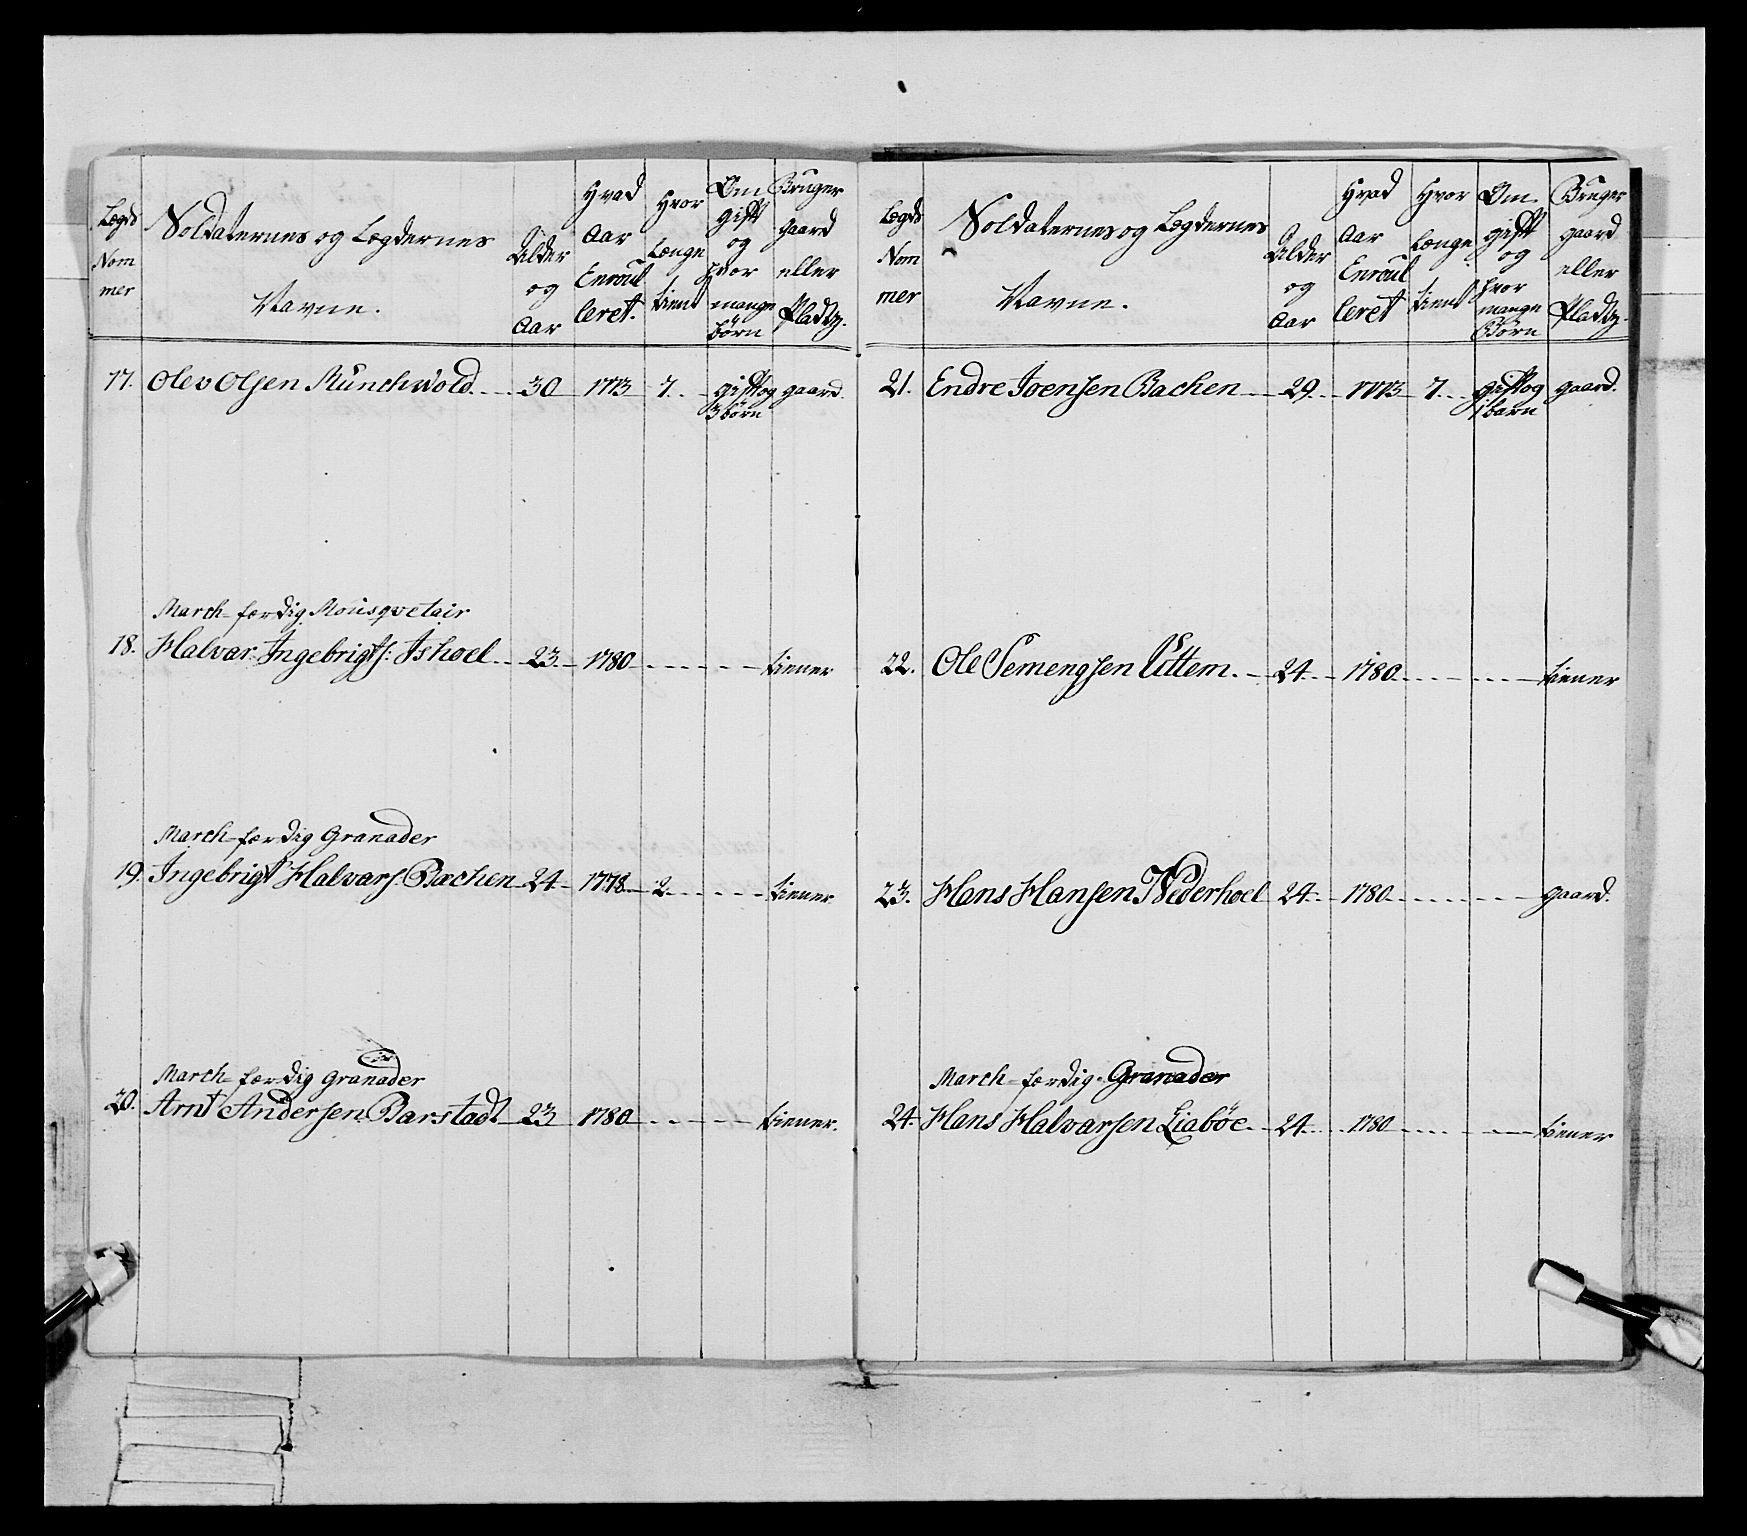 Lægds Nom mer
Soldaternes og Lægdernes Navne.
Alder og Aar
Hvad Aar Enroul leret.
Hvor Længe tient
Om gift og hvor mange börn
Bruger gaard eller Pladtz.
17. Olev Olsen Münchwold. 30 1773 7. gift og 3 börn gaard.
March-færdig Mousqvetair
18. Halvar Ingebrigts: Ishoel 23 1780 tiener
March-færdig Granader
19. Ingebrigt Halvars: Bachen 24 1778 2 tiener
March-færdig Granader
20. Arnt Andersen Barstadt 23 1780 tiener.
Lægds Nom mer
Soldaternes og Lægdernes Navne.
Alder og Aar
Hvad Aar Enroul leret
Hvor længe tient
Om gift og hvor mange Börn
Bruger gaard eller Pladtz.
21. Endre Joensen Bachen 29 1773 7. gift og 1 barn gaard.
22. Ole Semengsen Uttem. 24 1780 tiener
23. Hans Hansen Wederhoel 24 1780 gaard.
March-færdig Granader
24. Hans Halvarsen Liaböe 24 1780 tiener